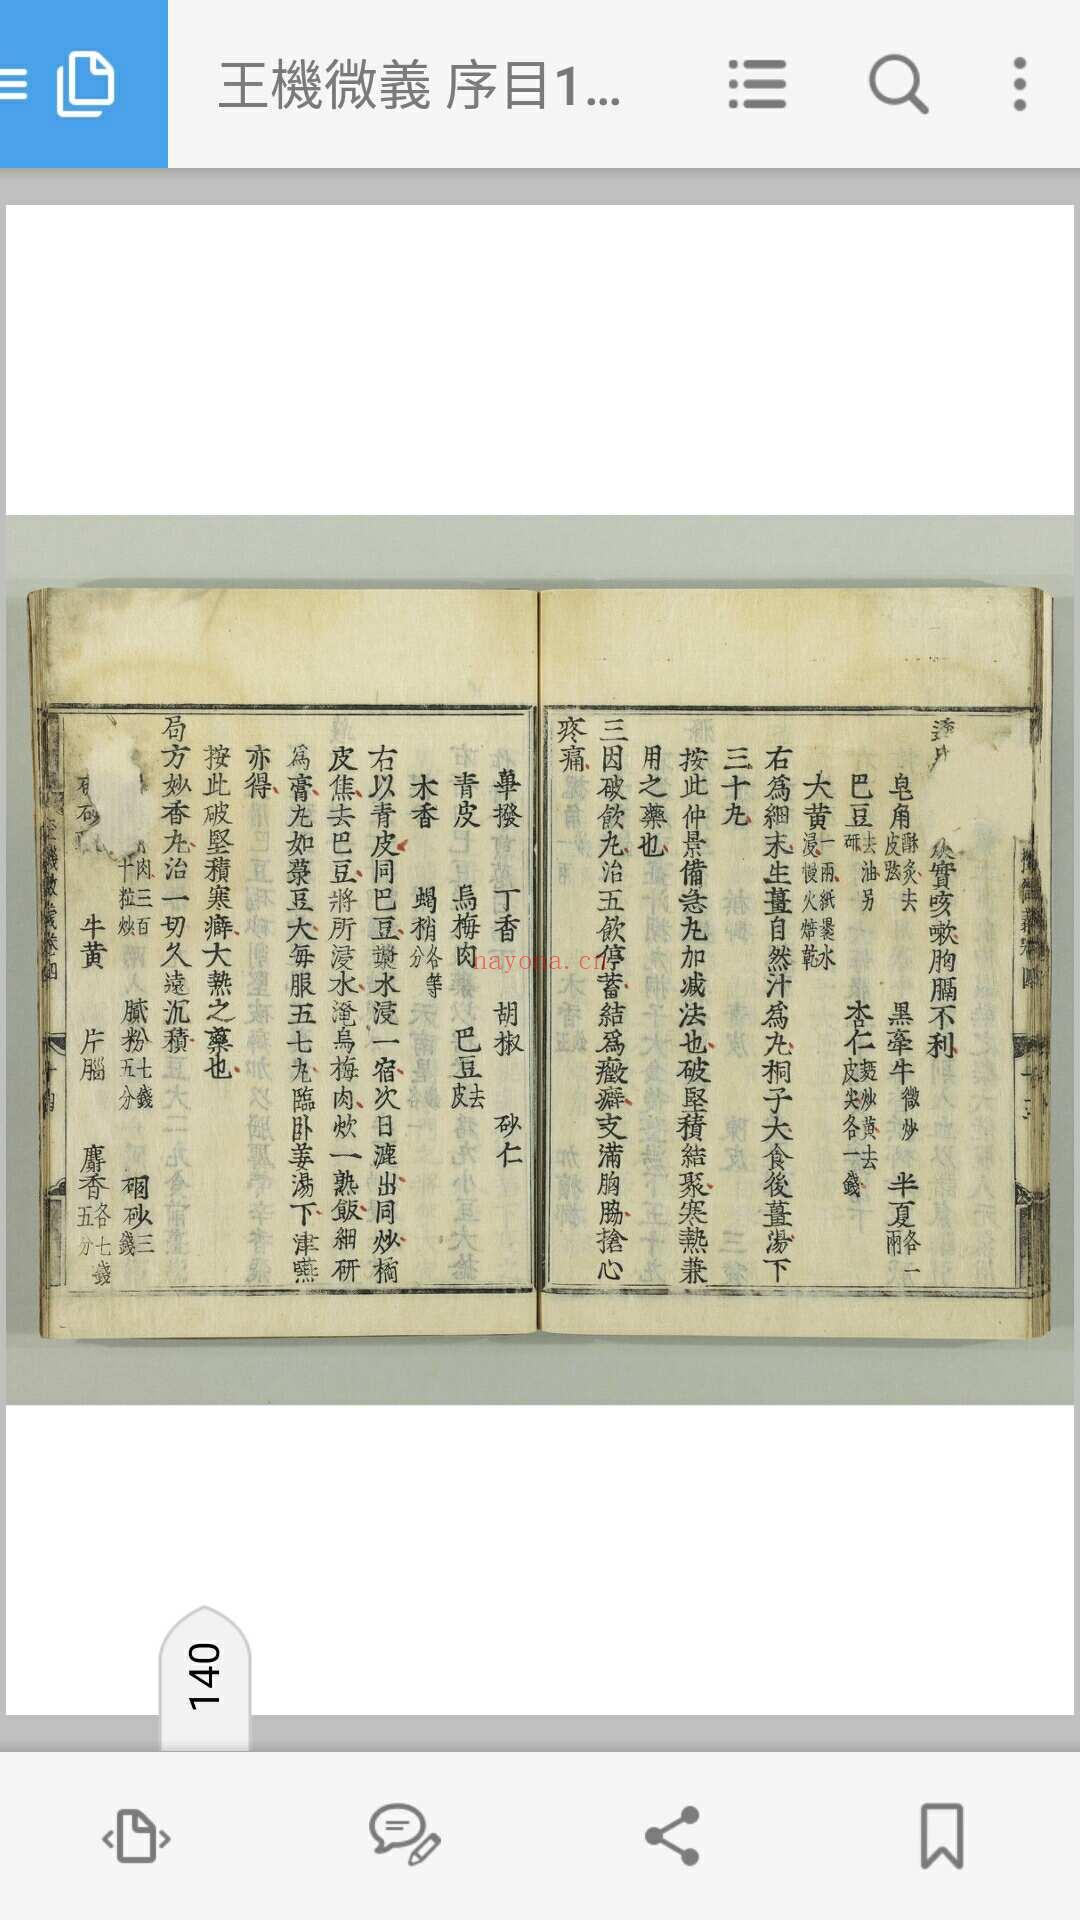 王機微義 序目1…
透
實咳嗽胸膈不利
皂角酥炙去皮㺯 黑牽牛微炒 半夏各一兩
巴豆去油另研 杏仁麸炒黄去皮尖各一錢
大黄一兩紙裹水浸慢火煨乾
右爲細末生薑自然汁爲九桐子大食後薑湯下
三十九
按此仲景備急九加减法也破堅積結聚寒熱兼
用之藥也
三因破飲九治五飲停蓄結爲癥癖支满胸脇搶心
疼痛
蓽撥 丁香 胡椒 砂仁
青皮 烏梅肉 巴豆去皮
木香 蝎梢各等分
右以青皮同巴豆漿水浸一宿次日漉出同炒橘
皮焦去巴豆將所浸水淹烏梅肉炊一熟飯細研
爲膏九如菉豆大每服五七九臨卧姜湯下津嚥
亦得
按此破堅積寒癖大熱之藥也
局方妙香九治一切久遠沉積
肉三百十粒炒 膩粉七錢五分 硇砂三錢
砂 牛黄 片腦 麝香各七錢五分
nayona.cn
140